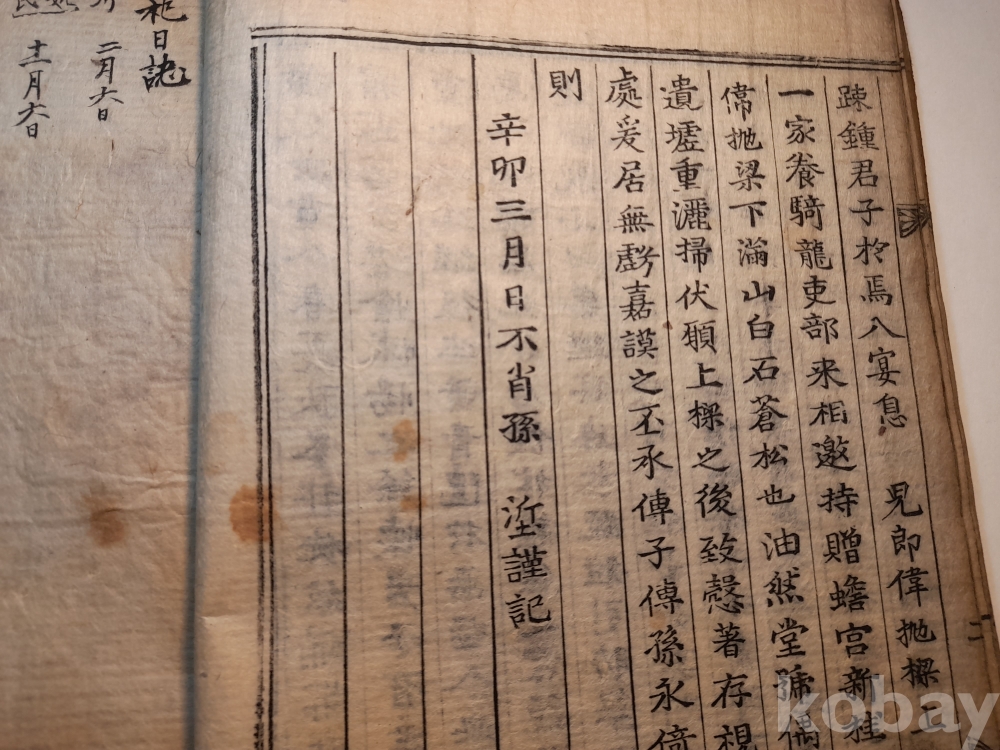 踈鍾君子於焉入宴息 兒郎偉抛樑上
一家養騎龍吏部来相邀持贈蟾宮新桂
抛梁下滿山白石蒼松也油然堂號偶
遺墟重灑掃伏願上樑之後致慤著存視
處爰居無虧嘉謨之丕承傳子傳孫永倚
則
辛卯三月日不肖孫 謹記
祀日誌
二月六日
十一月六日
kobay